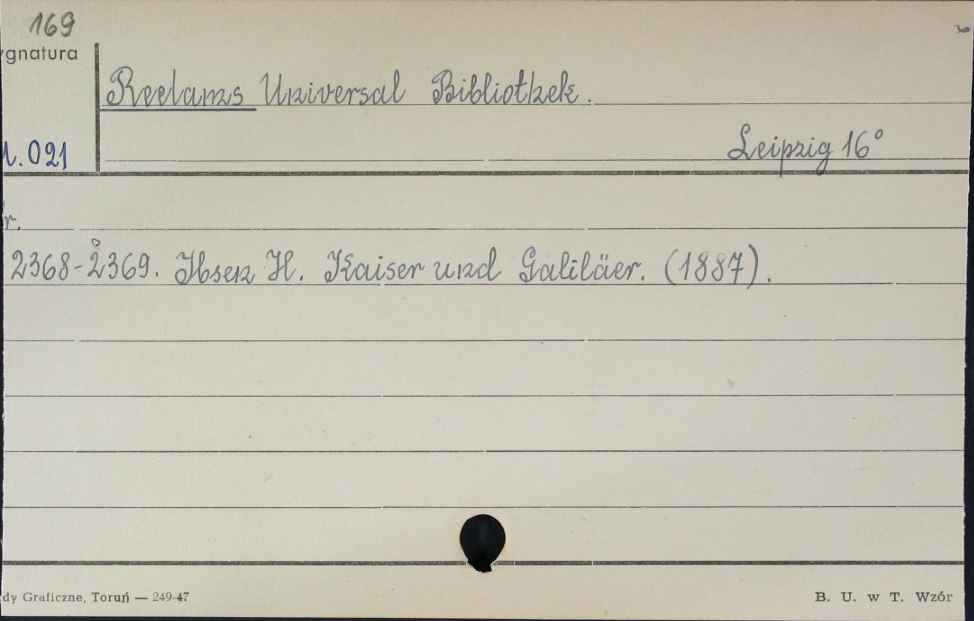 169
ygnatura
Reclams Universal Bibliothek.
Leipzig 16°
1.021
r.
2368-2369. Ibsen H. Kaiser und Galiläer. (1887).
dy Graficzne, Toruń — 249-47
B. U. w T. Wzór